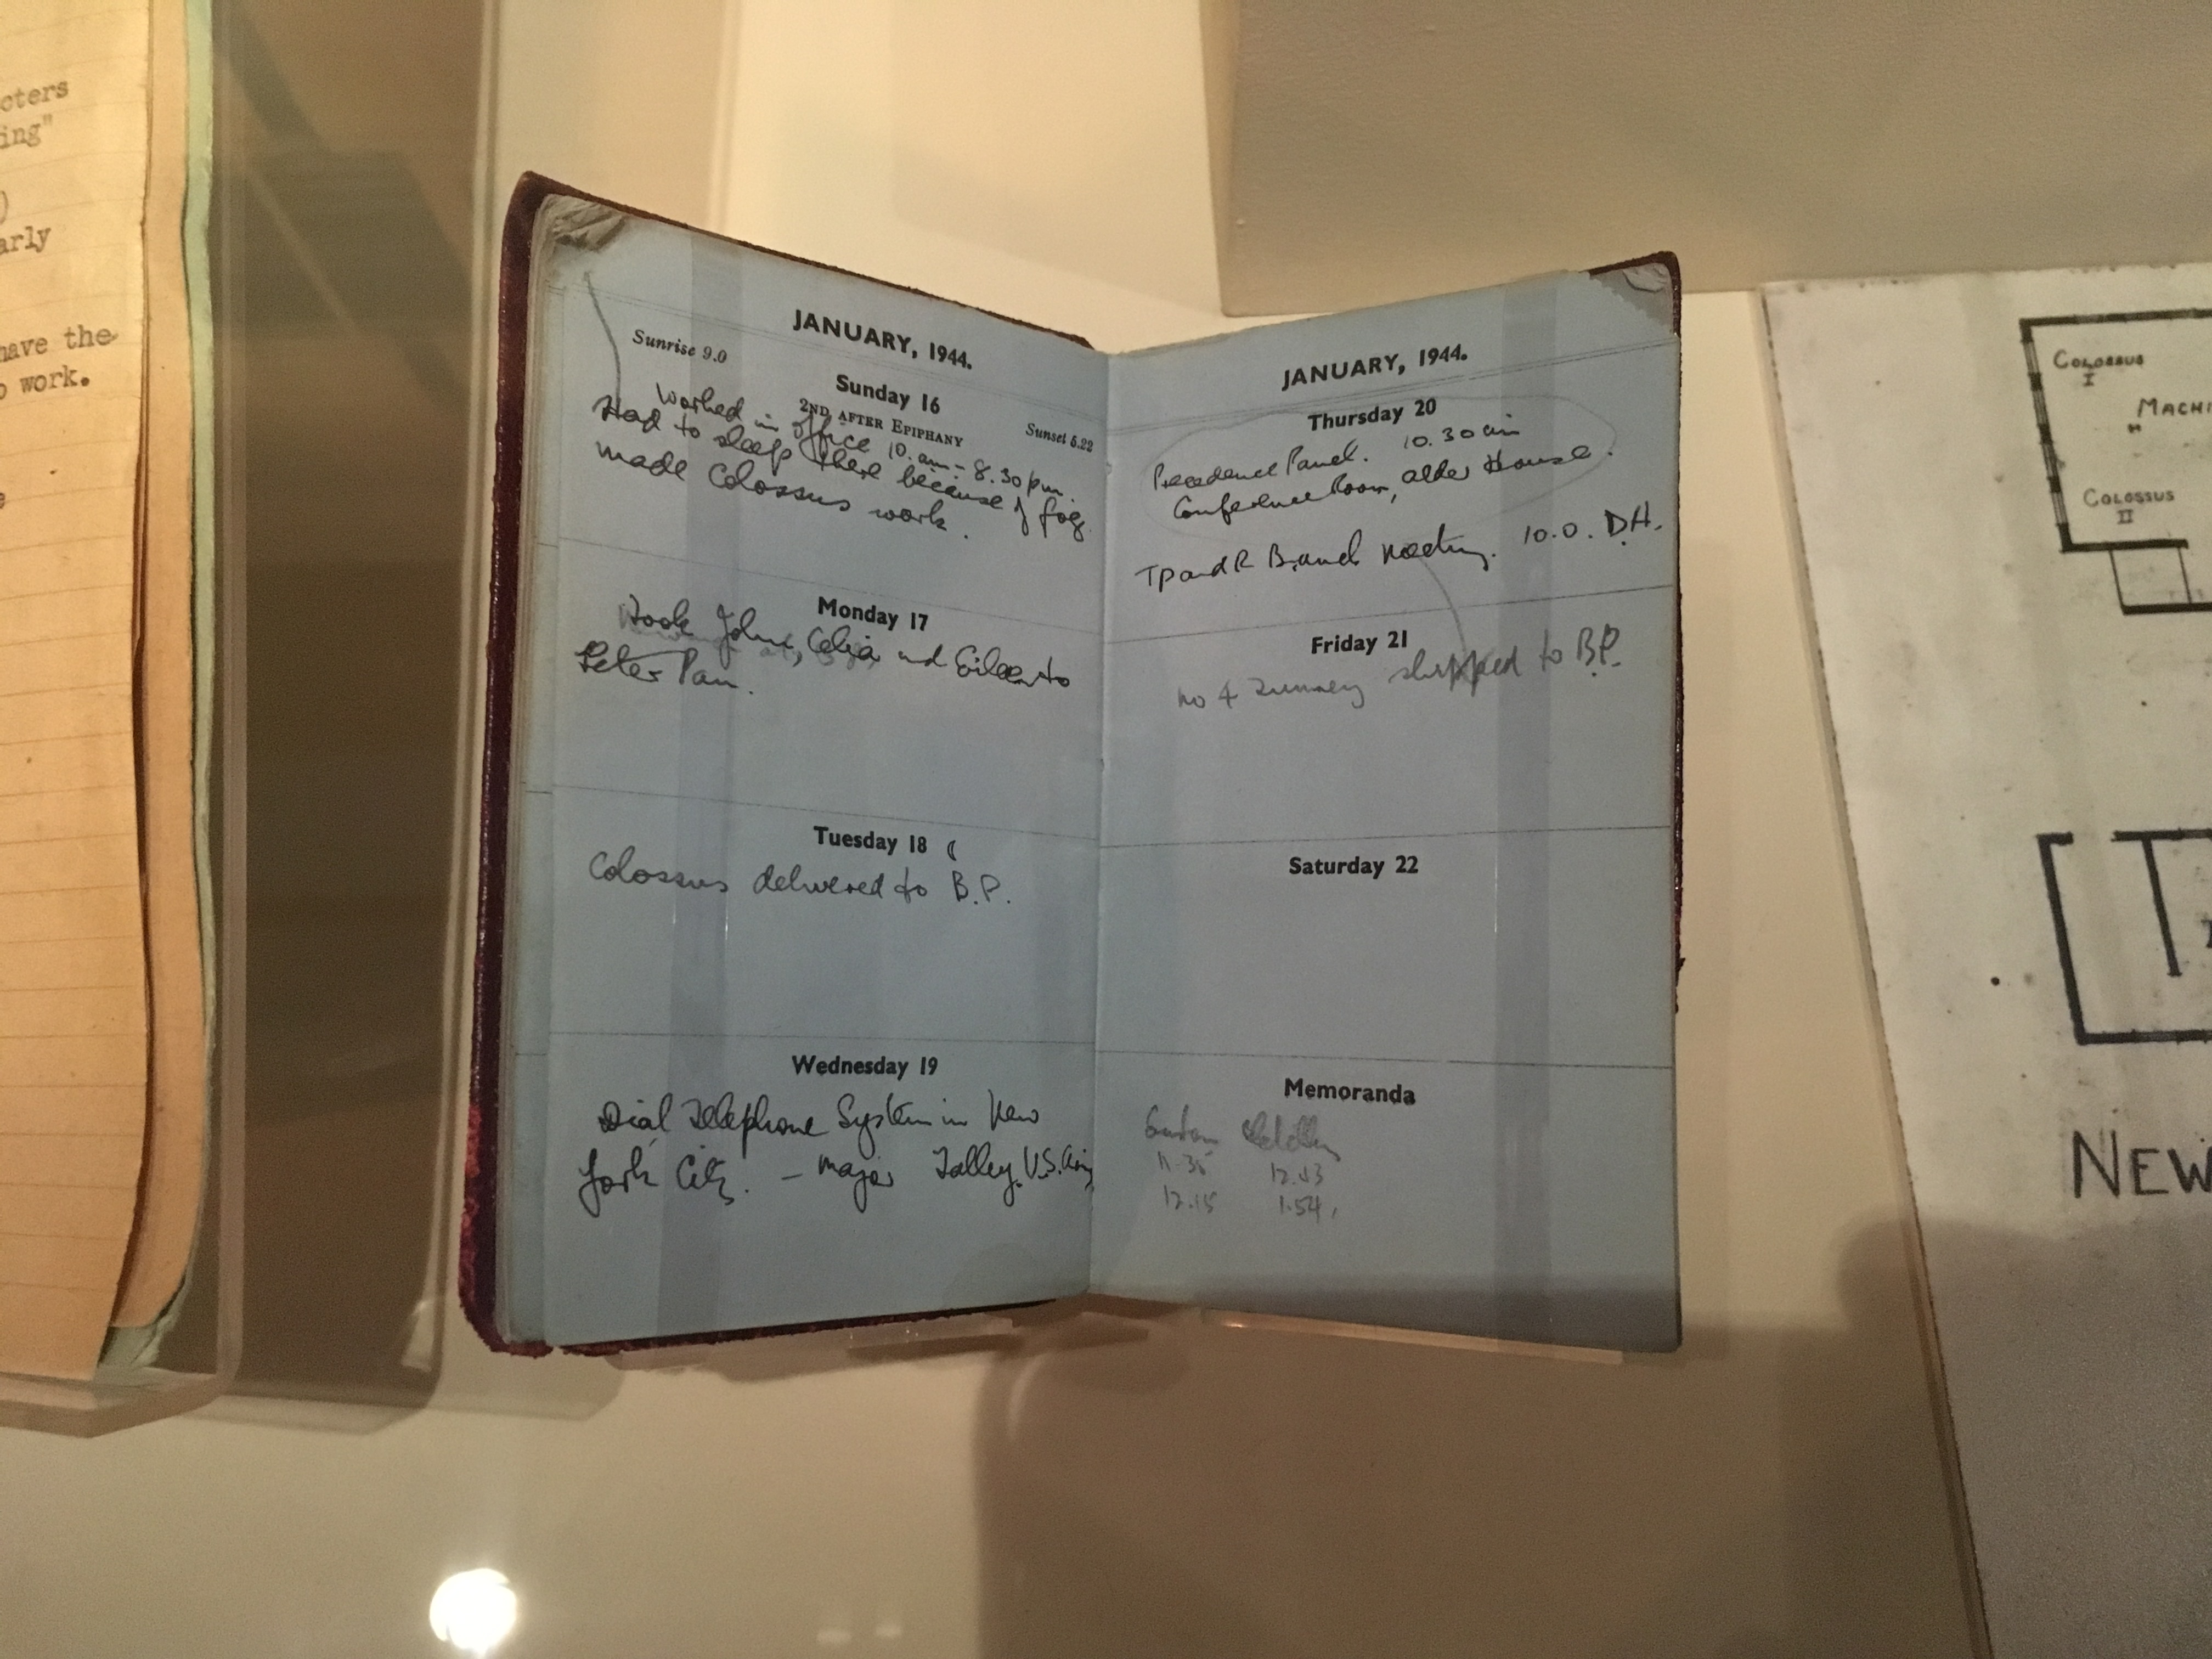 cters
ing"
)
arly
have the
o work.
JANUARY, 1944.
Sunrise 9.0
Sunday 16
2ND AFTER EPIPHANY
Sunset 5.22
Worked in office 10.am - 8.30pm.
Had to sleep there because of fog.
made Colossus work.
Monday 17
Took John, Celia and Eileen to
Peter Pan.
Tuesday 18
Colossus delivered to B.P.
Wednesday 19
Dial Telephone System in New
York City. - Major Talley, U.S. Army
JANUARY, 1944.
Thursday 20
Precedence Panel. 10.30 am
Conference Room, Alder House.
TP and R Branch meeting. 10.0. D.H.
Friday 21
no 4 shipped to B.P.
Saturday 22
Memoranda
Euston Bletchley
11.35
12.15 1.54
COLOSSUS
I
MACHI
COLOSSUS
II
NEW